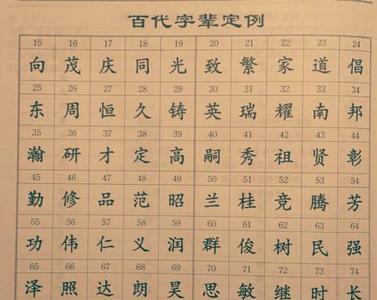 百代字辈定例
15 16 17 18 19 20 21 22 23 24
向 茂 庆 同 光 致 繁 家 道 倡
25 26 27 28 29 30 31 32 33 34
东 周 恒 久 铸 英 瑞 耀 南 邦
35 36 37 38 39 40 41 42 43 44
瀚 研 才 定 高 嗣 秀 祖 贤 彰
45 46 47 48 49 50 51 52 53 54
勤 修 品 范 昭 兰 桂 竞 腾 芳
55 56 57 58 59 60 61 62 63 64
功 伟 仁 义 润 群 俊 树 民 强
65 66 67 68 69 70 71 72 73 74
泽 照 达 朗 昊 思 敏 继 时 长